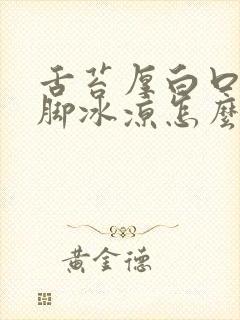 舌苔厚白口
脚冰凉怎麼
黄金德